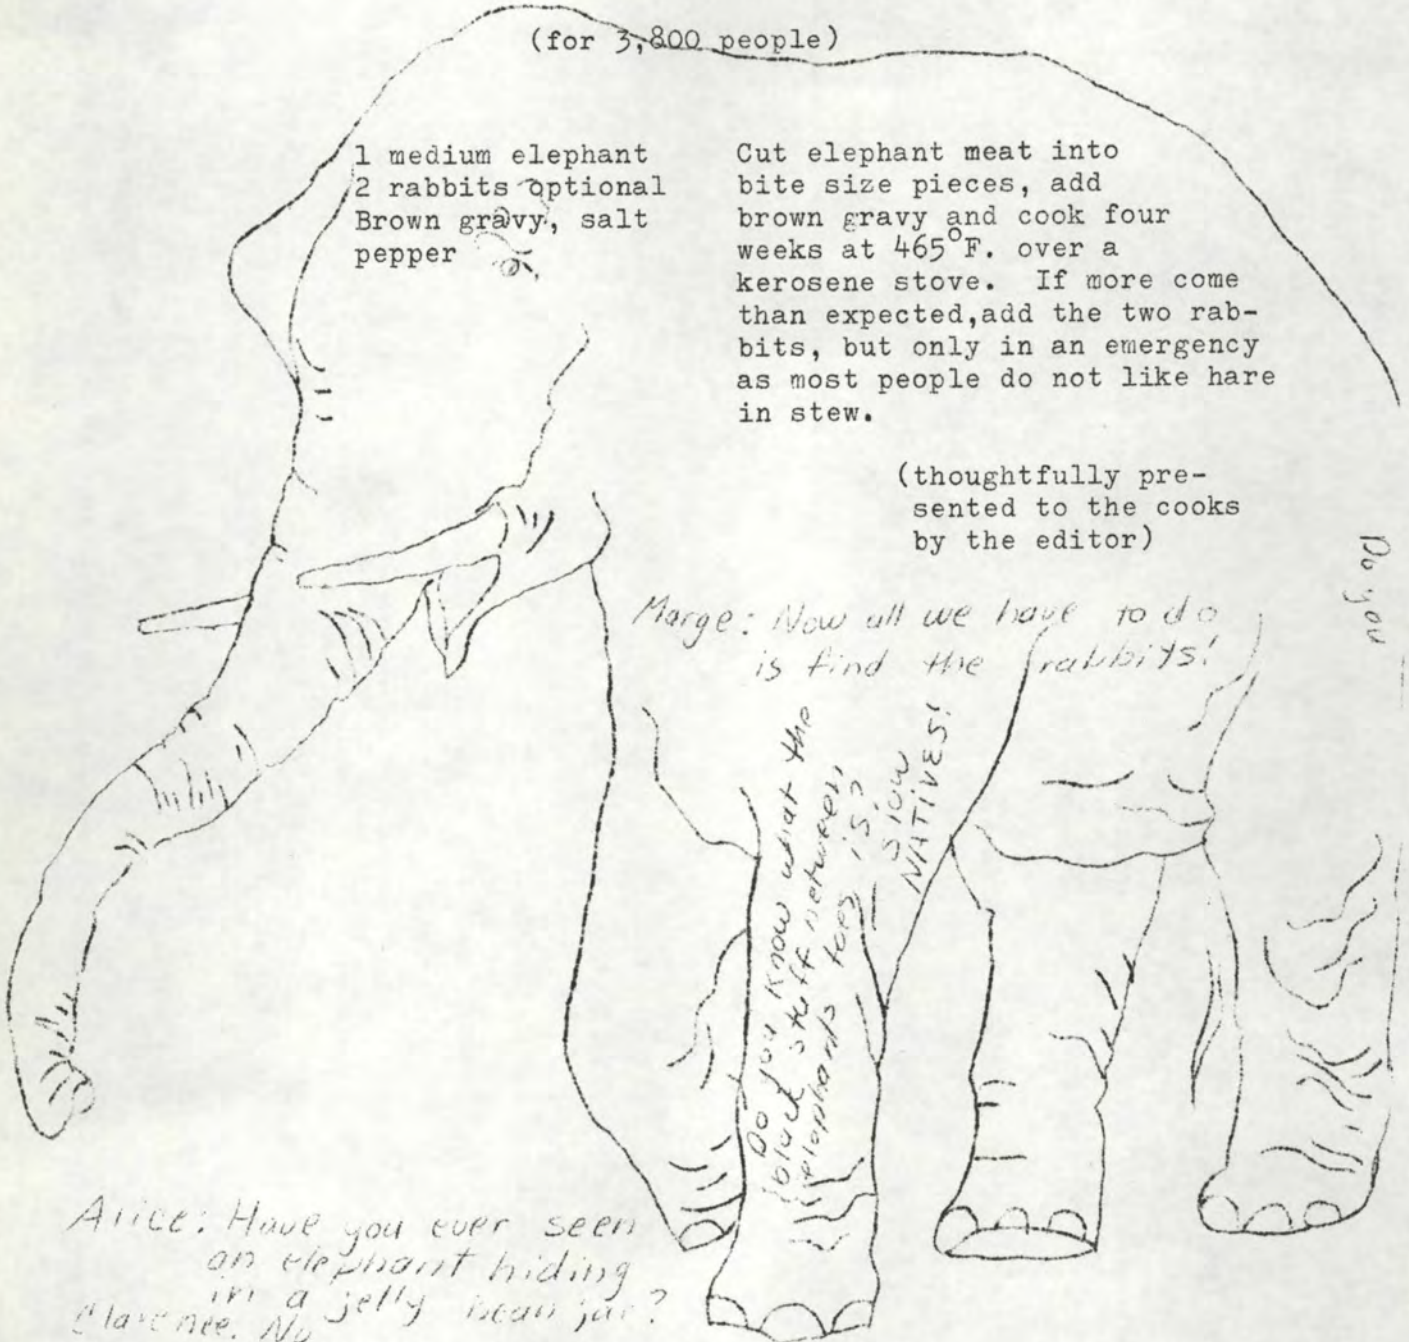 (for 3,800 people)
1 medium elephant
2 rabbits optional
Brown gravy, salt
pepper
Cut elephant meat into
bite size pieces, add
brown gravy and cook four
weeks at 465°F. over a
kerosene stove. If more come
than expected,add the two rab-
bits, but only in an emergency
as most people do not like hare
in stew.
(thoughtfully pre-
sented to the cooks
by the editor)
Do you
Marge: Now all we have to do
is find the rabbits!
Do you know what the
black stuff between
elephants toes is?
— Slow
NATIVES!
Alice: Have you ever seen
an elephant hiding
in a jelly bean jar?
Clarence. No